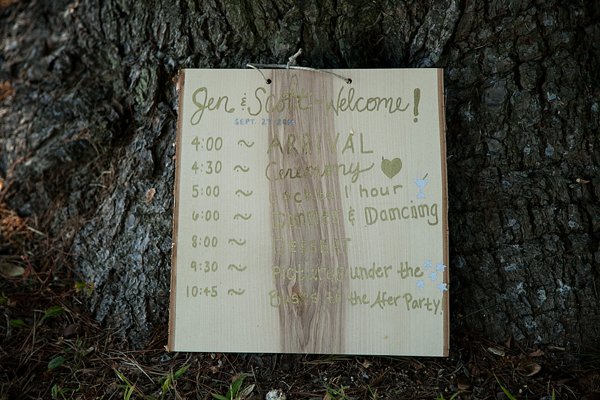 Jen & Scott - Welcome!
SEPT. 27
4:00 ~ ARRIVAL
4:30 ~ Ceremony
5:00 ~ Cocktail hour
6:00 ~ Dinner & Dancing
8:00 ~ DESSERT
9:30 ~ Pictures under the
10:45 ~ Buses to the Afer Party!